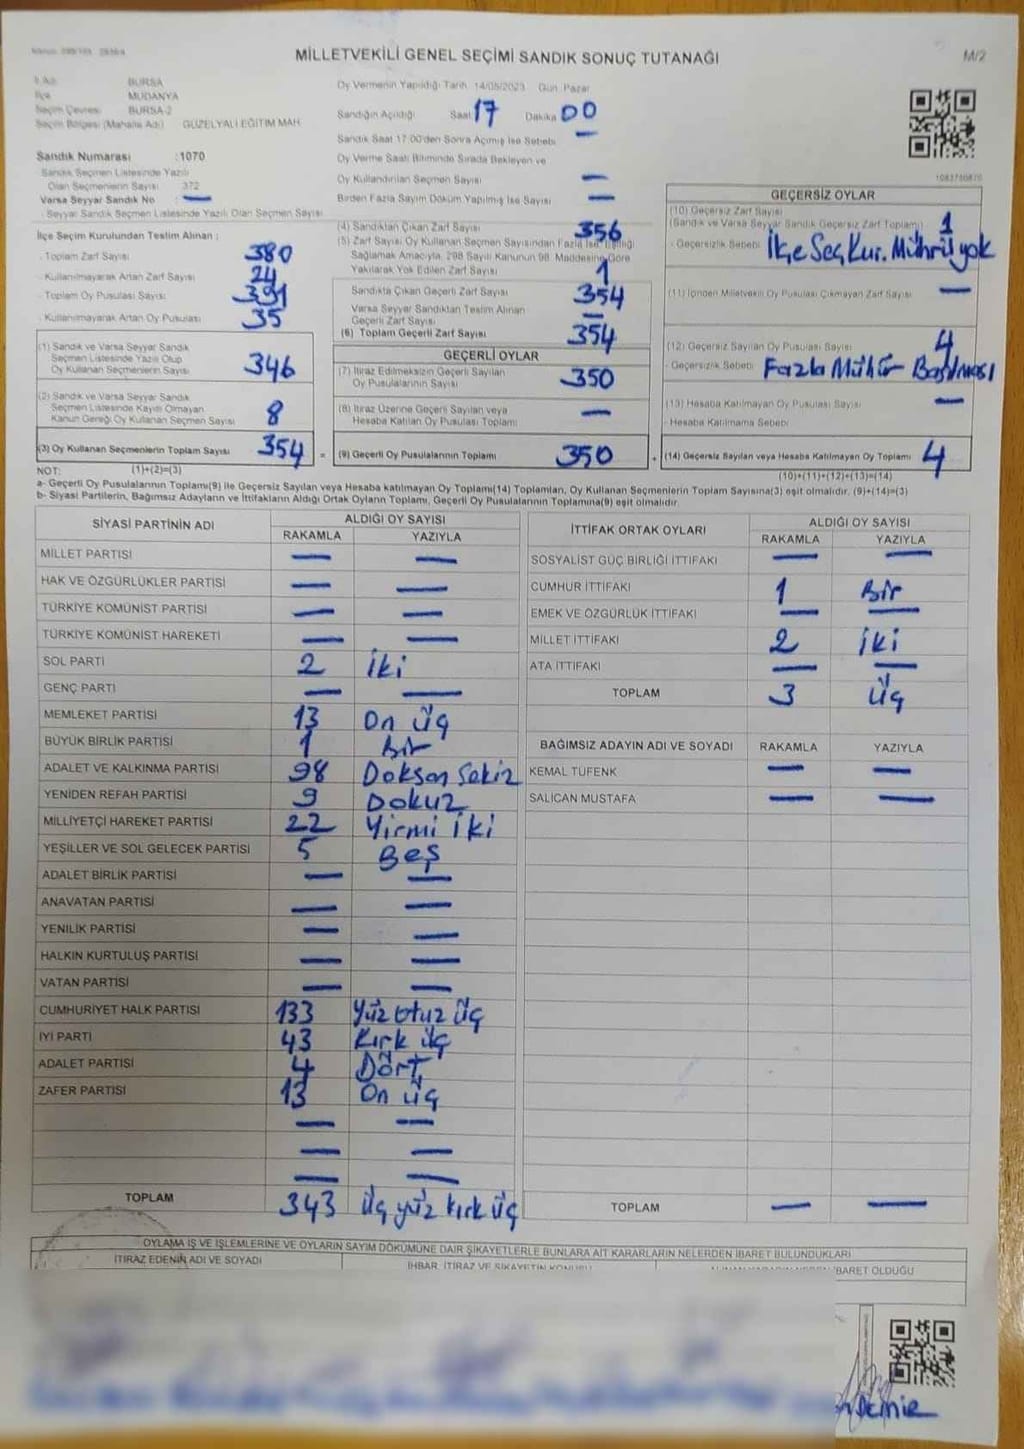 MİLLETVEKİLİ GENEL SEÇİMİ SANDIK SONUÇ TUTANAĞI
M/2
İl Adı: BURSA
İlçe MUDANYA
Seçim Çevresi BURSA-2
Seçim Bölgesi (Mahalle Adı) GÜZELYALI EĞİTİM MAH
Sandık Numarası :1070
Sandık Seçmen Listesinde Yazılı
Olan Seçmenlerin Sayısı 372
Varsa Seyyar Sandık No —
Seyyar Sandık Seçmen Listesinde Yazılı Olan Seçmen Sayısı
Oy Vermenin Yapıldığı Tarih 14/05/2023 Gün Pazar
Sandığın Açıldığı Saat 17 Dakika 00
Sandık Saat 17:00'den Sonra Açılmış İse Sebebi —
Oy Verme Saati Bitiminde Sırada Bekleyen ve
Oy Kullandırılan Seçmen Sayısı —
Birden Fazla Sayım Döküm Yapılmış İse Sayısı —
İlçe Seçim Kurulundan Teslim Alınan :
- Toplam Zarf Sayısı 380
- Kullanılmayarak Artan Zarf Sayısı 24
- Toplam Oy Pusulası Sayısı 391
- Kullanılmayarak Artan Oy Pusulası 35
(1) Sandık ve Varsa Seyyar Sandık
Seçmen Listesinde Yazılı Olup
Oy Kullanan Seçmenlerin Sayısı 346
(2) Sandık ve Varsa Seyyar Sandık
Seçmen Listesinde Kayıtlı Olmayan
Kanun Gereği Oy Kullanan Seçmen Sayısı 8
(3) Oy Kullanan Seçmenlerin Toplam Sayısı 354 =
(4) Sandıktan Çıkan Zarf Sayısı 356
(5) Zarf Sayısı Oy Kullanan Seçmen Sayısından Fazla İse, Eşitliği
Sağlamak Amacıyla, 298 Sayılı Kanunun 98. Maddesine Göre
Yakılarak Yok Edilen Zarf Sayısı 1
Sandıkta Çıkan Geçerli Zarf Sayısı 354
Varsa Seyyar Sandıktan Teslim Alınan
Geçerli Zarf Sayısı —
(6) Toplam Geçerli Zarf Sayısı 354
GEÇERLİ OYLAR
(7) İtiraz Edilmeksizin Geçerli Sayılan
Oy Pusulalarının Sayısı 350
(8) İtiraz Üzerine Geçerli Sayılan veya
Hesaba Katılan Oy Pusulası Toplamı —
(9) Geçerli Oy Pusulalarının Toplamı 350 +
GEÇERSİZ OYLAR
(10) Geçersiz Zarf Sayısı
(Sandık ve Varsa Seyyar Sandık Geçersiz Zarf Toplamı) 1
- Geçersizlik Sebebi İlçe Seç Kur. Mührü yok
(11) İçinden Milletvekili Oy Pusulası Çıkmayan Zarf Sayısı —
(12) Geçersiz Sayılan Oy Pusulası Sayısı 4
- Geçersizlik Sebebi Fazla Mühür Basılması
(13) Hesaba Katılmayan Oy Pusulası Sayısı —
- Hesaba Katılmama Sebebi
(14) Geçersiz Sayılan veya Hesaba Katılmayan Oy Toplamı 4
NOT: (1)+(2)=(3)
(10)+(11)+(12)+(13)=(14)
a- Geçerli Oy Pusulalarının Toplamı(9) ile Geçersiz Sayılan veya Hesaba katılmayan Oy Toplamı(14) Toplamları, Oy Kullanan Seçmenlerin Toplam Sayısına(3) eşit olmalıdır. (9)+(14)=(3)
b- Siyasi Partilerin, Bağımsız Adayların ve İttifakların Aldığı Ortak Oyların Toplamı, Geçerli Oy Pusulalarının Toplamına(9) eşit olmalıdır.
SİYASİ PARTİNİN ADI ALDIĞI OY SAYISI
RAKAMLA YAZIYLA
MİLLET PARTİSİ — —
HAK VE ÖZGÜRLÜKLER PARTİSİ — —
TÜRKİYE KOMÜNİST PARTİSİ — —
TÜRKİYE KOMÜNİST HAREKETİ — —
SOL PARTİ 2 İki
GENÇ PARTİ — —
MEMLEKET PARTİSİ 13 On üç
BÜYÜK BİRLİK PARTİSİ 1 Bir
ADALET VE KALKINMA PARTİSİ 98 Doksan Sekiz
YENİDEN REFAH PARTİSİ 9 Dokuz
MİLLİYETÇİ HAREKET PARTİSİ 22 Yirmi İki
YEŞİLLER VE SOL GELECEK PARTİSİ 5 Beş
ADALET BİRLİK PARTİSİ — —
ANAVATAN PARTİSİ — —
YENİLİK PARTİSİ — —
HALKIN KURTULUŞ PARTİSİ — —
VATAN PARTİSİ — —
CUMHURİYET HALK PARTİSİ 133 Yüz Otuz Üç
İYİ PARTİ 43 Kırk üç
ADALET PARTİSİ 4 Dört
ZAFER PARTİSİ 13 On üç
— —
— —
— —
TOPLAM 343 üç yüz kırk üç
İTTİFAK ORTAK OYLARI ALDIĞI OY SAYISI
RAKAMLA YAZIYLA
SOSYALİST GÜÇ BİRLİĞİ İTTİFAKI — —
CUMHUR İTTİFAKI 1 Bir
EMEK VE ÖZGÜRLÜK İTTİFAKI — —
MİLLET İTTİFAKI 2 İki
ATA İTTİFAKI — —
TOPLAM 3 üç
BAĞIMSIZ ADAYIN ADI VE SOYADI RAKAMLA YAZIYLA
KEMAL TÜFENK — —
SALİCAN MUSTAFA — —
TOPLAM — —
OYLAMA İŞ VE İŞLEMLERİNE VE OYLARIN SAYIM DÖKÜMÜNE DAİR ŞİKAYETLERLE BUNLARA AİT KARARLARIN NELERDEN İBARET BULUNDUKLARI
İTİRAZ EDENİN ADI VE SOYADI
İHBAR, İTİRAZ VE ŞİKAYETİN KONUSU
İBARET OLDUĞU